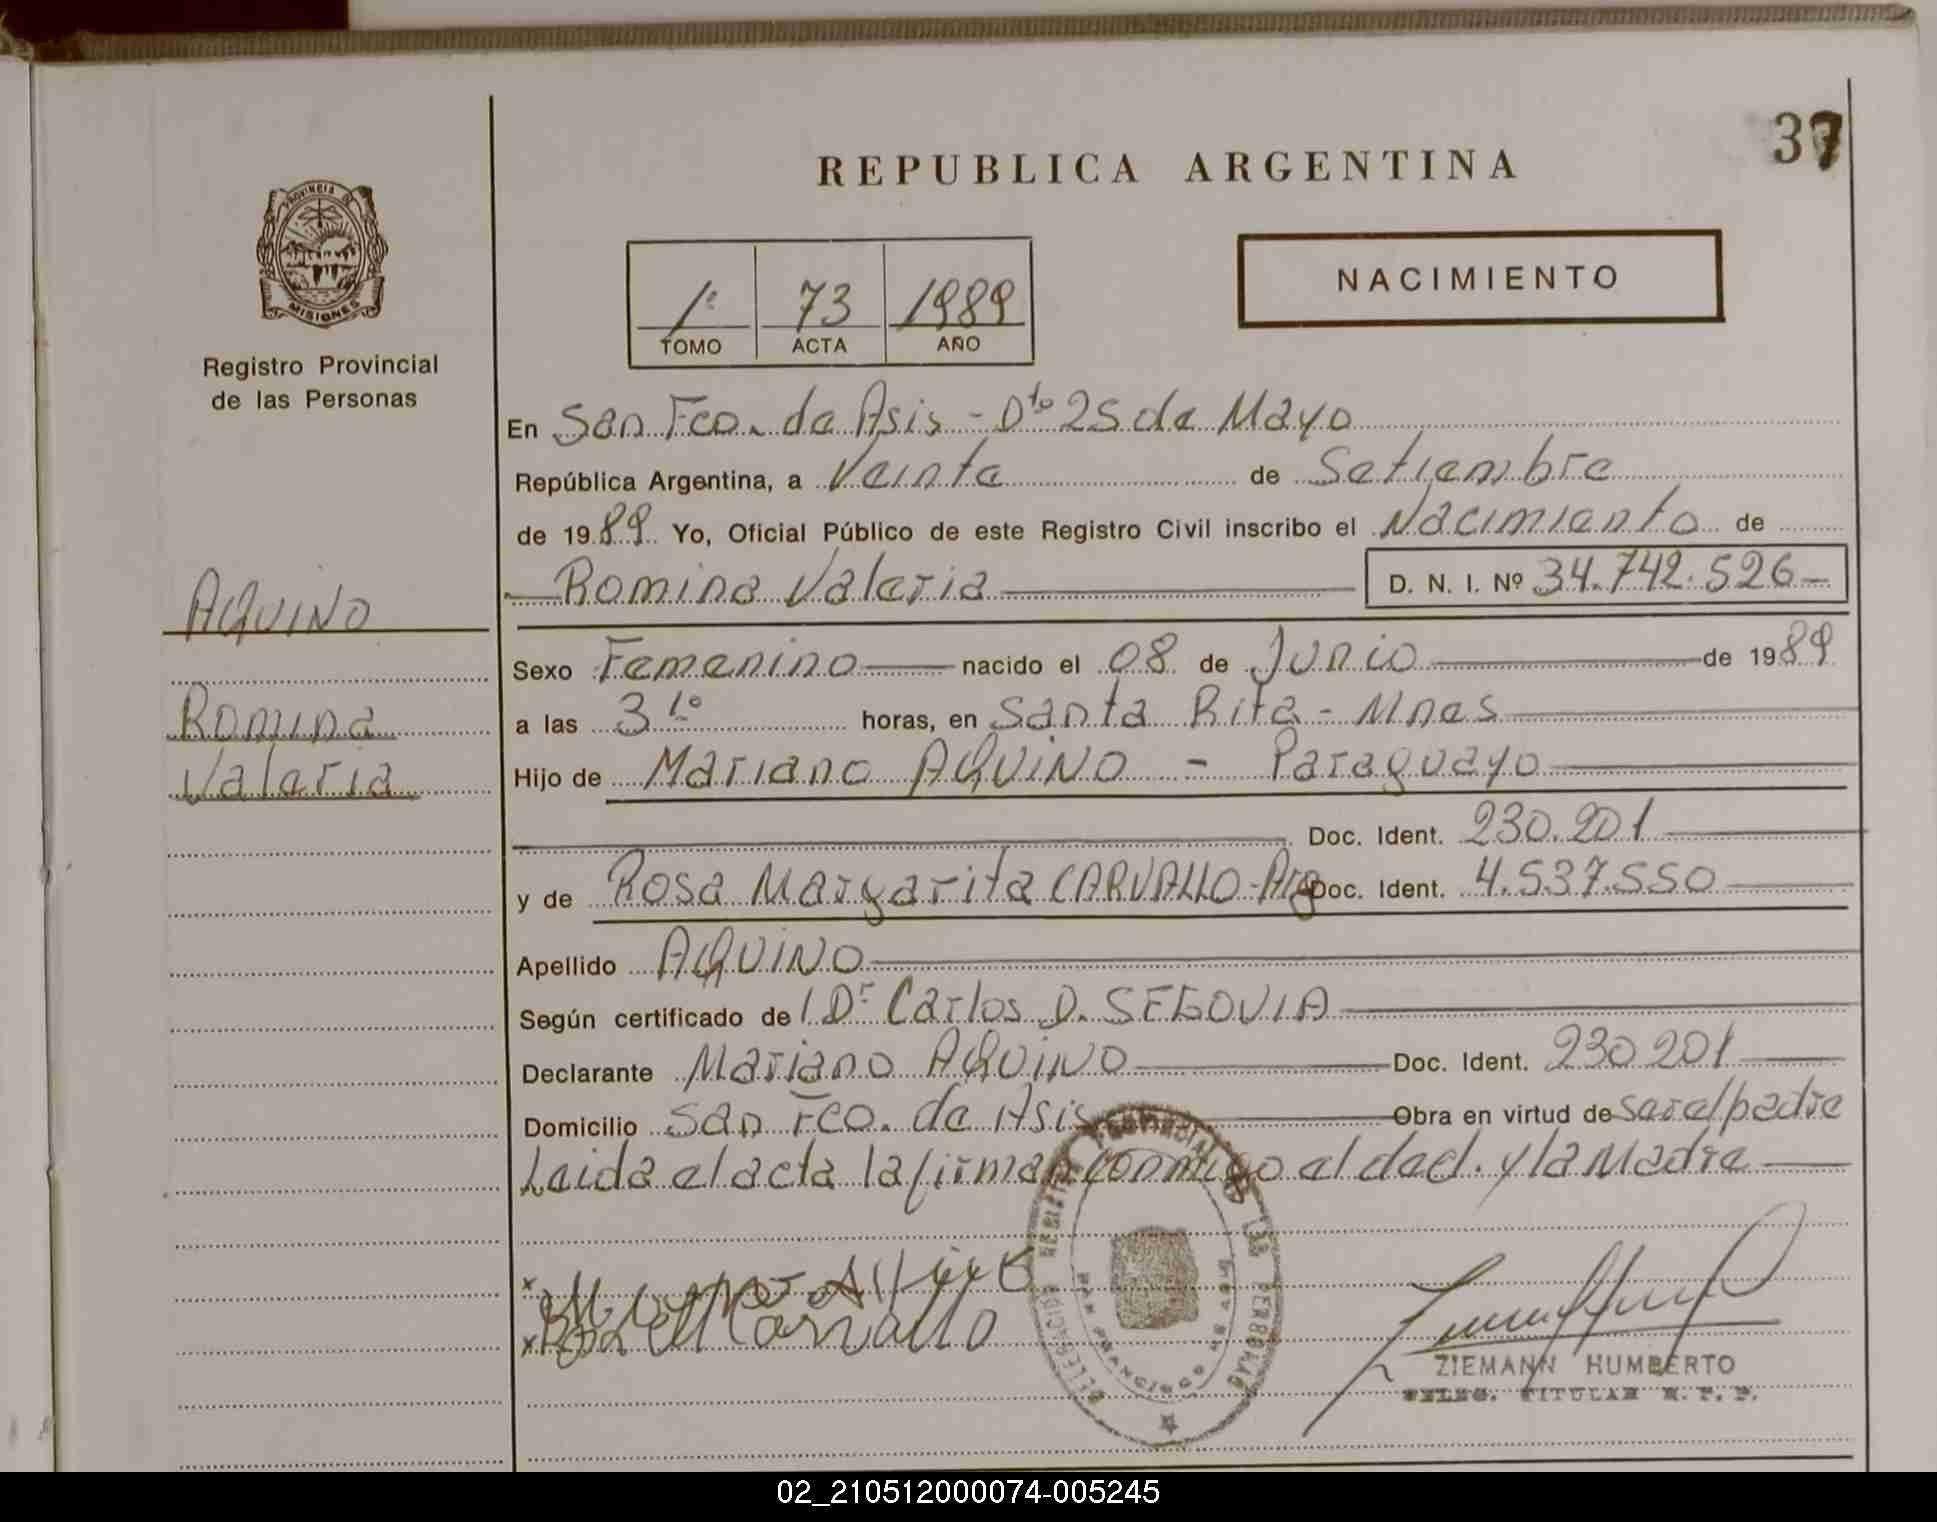 37
REPUBLICA ARGENTINA
PROVINCIA DE
MISIONES
Registro Provincial
de las Personas
1º 73 1989
TOMO ACTA AÑO
NACIMIENTO
En San Fco. de Asis - Dto 25 de Mayo
República Argentina, a Veinte de Setiembre
de 1989 Yo, Oficial Público de este Registro Civil inscribo el Nacimiento de
Romina Valeria D. N. I. Nº 34.742.526
AQUINO
Romina
Valeria
Sexo Femenino nacido el 08 de Junio de 1989
a las 3 1º horas, en Santa Rita - Mnes
Hijo de Mariano AQUINO - Paraguayo
Doc. Ident. 230.201
y de Rosa Margarita CARVALLO - Arg Doc. Ident. 4.537.550
Apellido AQUINO
Según certificado de l Dr Carlos D. SEGOVIA
Declarante Mariano AQUINO Doc. Ident. 230.201
Domicilio San Fco. de Asis Obra en virtud de ser el padre
Leida el acta la firman conmigo el decl. y la Madre
x
x Rosa M Carvallo
DELEGACION REGISTRO PROVINCIAL DE LAS PERSONAS
SAN FRANCISCO DE ASIS
ZIEMANN HUMBERTO
DELEG. TITULAR R. P. P.
02_210512000074-005245